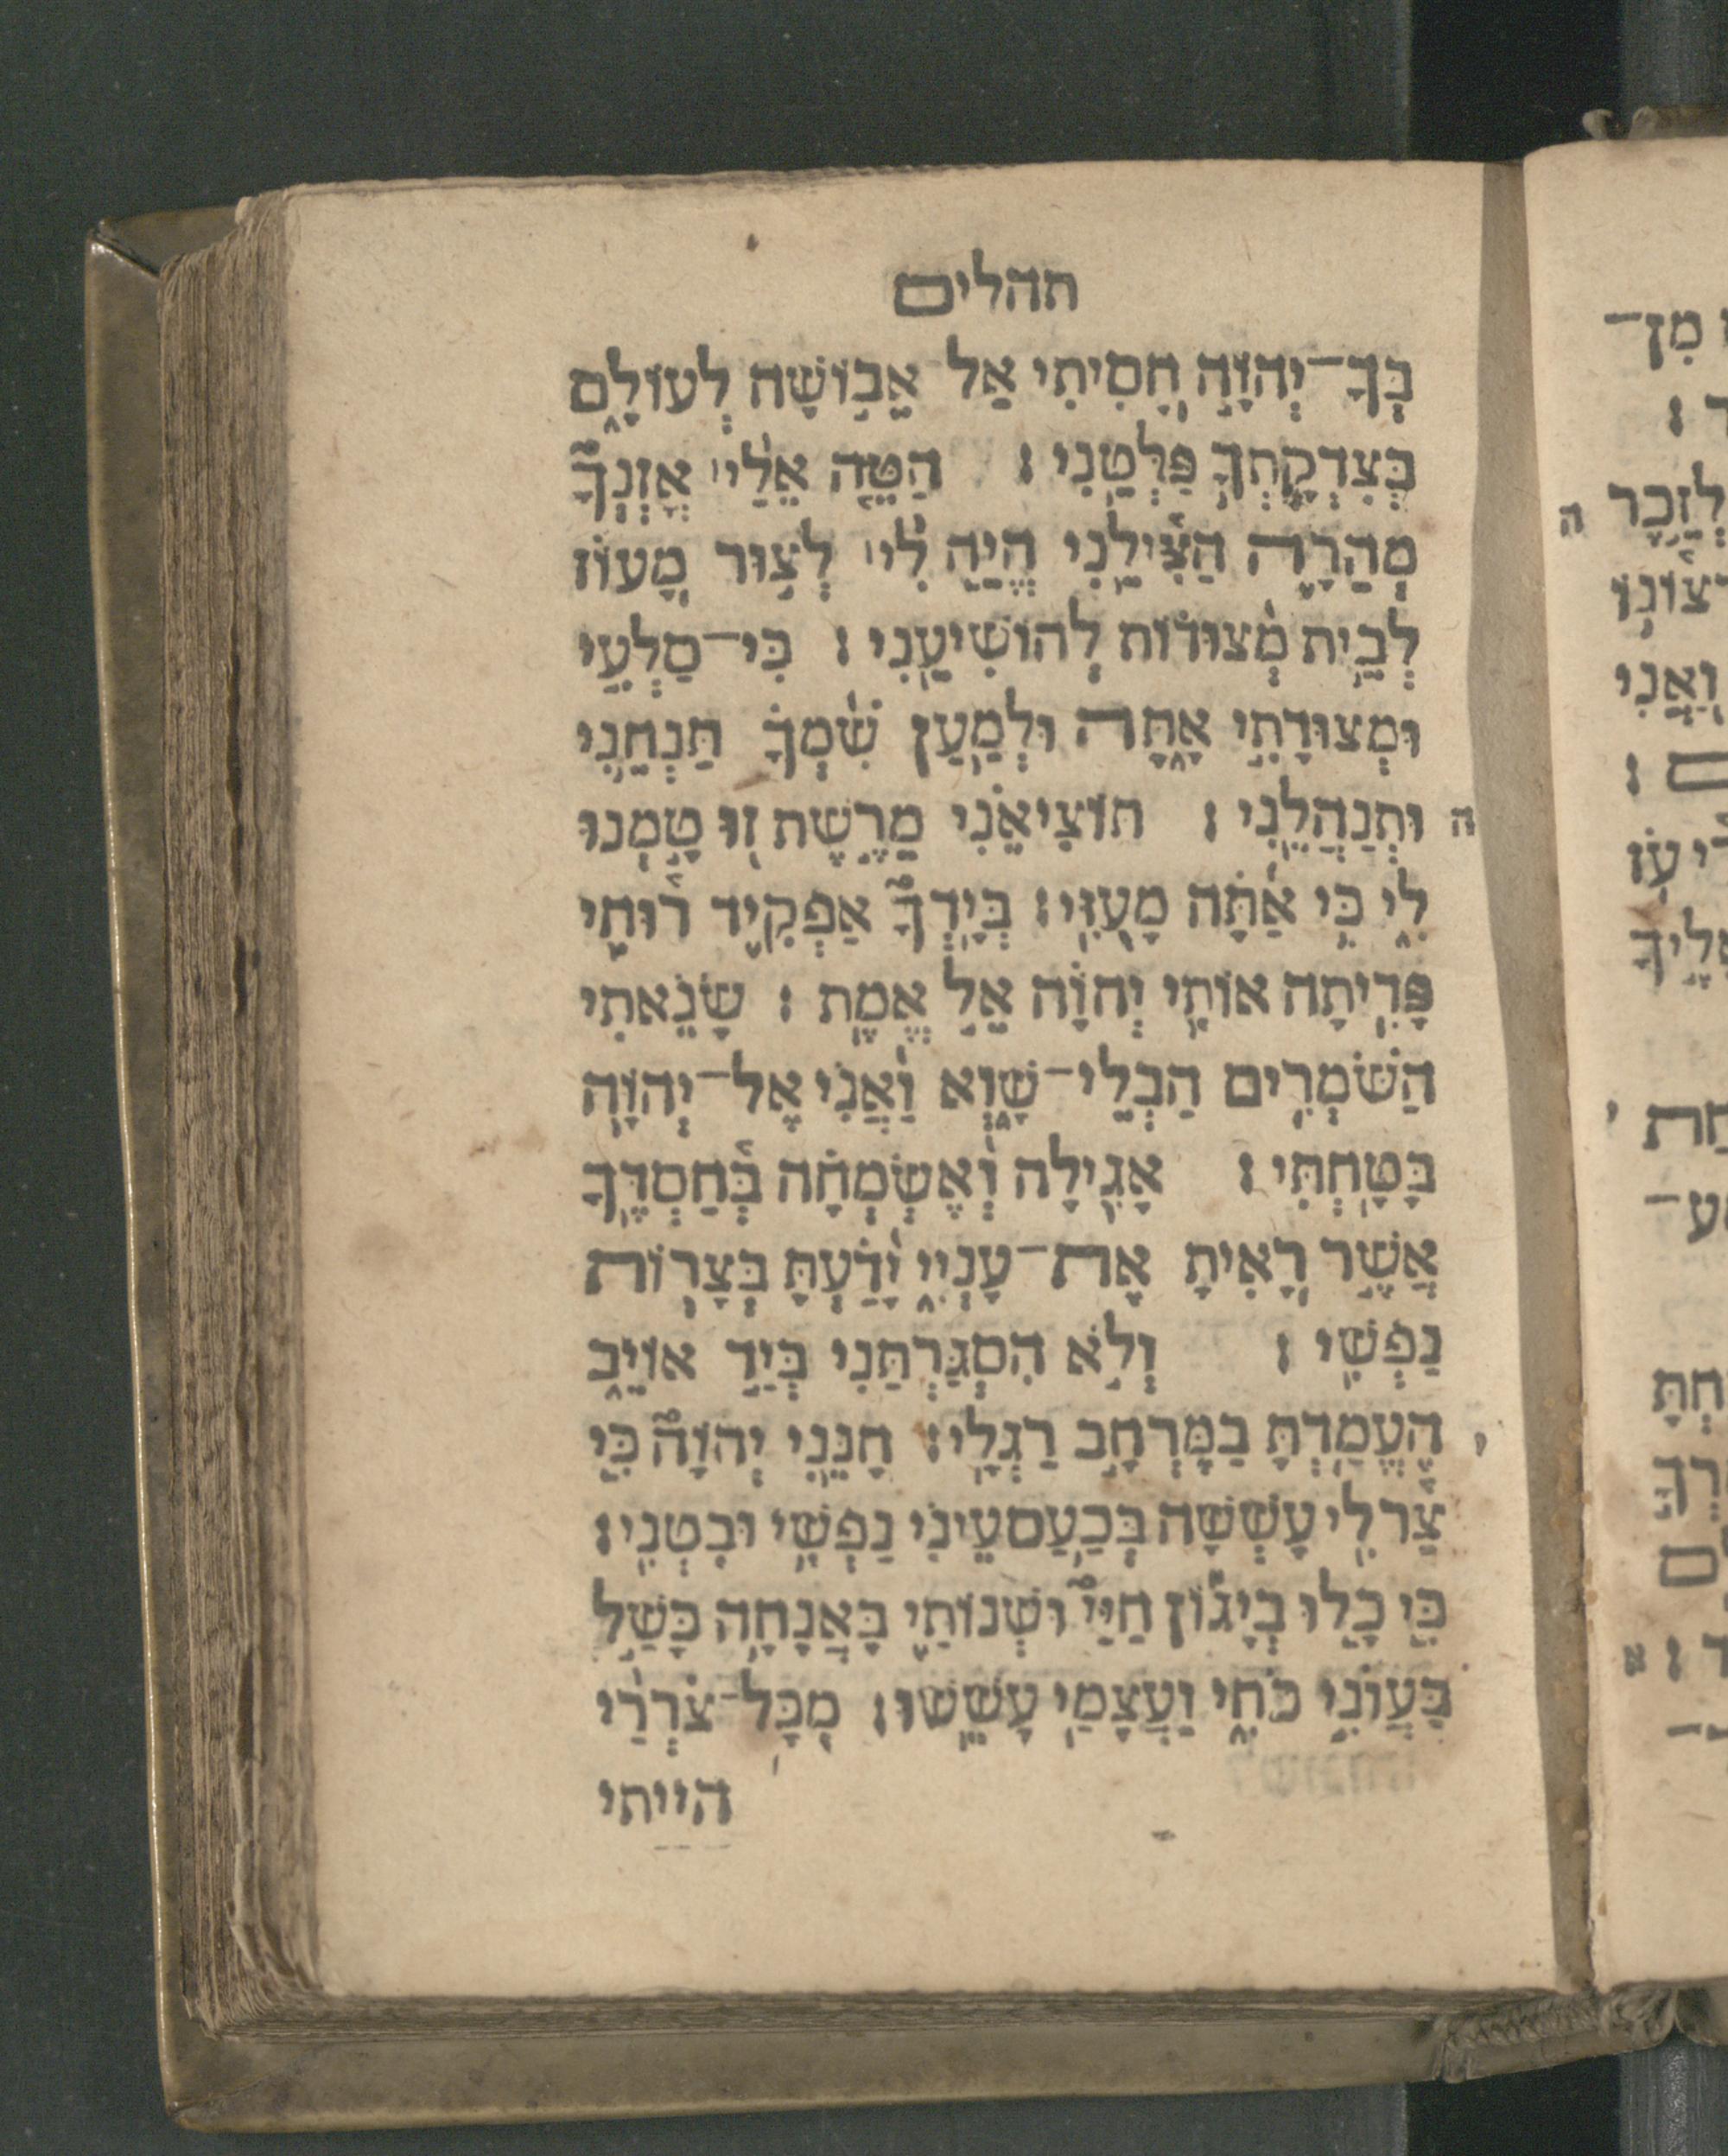 תהלים
בְּךָ־יְהוָ֣ה חָ֭סִיתִי אַל־אֵב֣וֹשָׁה לְעוֹלָ֑ם
בְּצִדְקָתְךָ֥ פַלְּטֵֽנִי׃ הַטֵּ֤ה אֵלַ֨י׀ אָזְנְךָ֮
מְהֵרָ֪ה הַצִּ֫ילֵ֥נִי הֱיֵ֤ה לִ֨י׀ לְֽצוּר מָ֭עוֹז
לְבֵ֥ית מְ֝צוּד֗וֹת לְהוֹשִׁיעֵֽנִי׃ כִּי־סַלְעִ֣י
וּמְצוּדָתִ֣י אָ֑תָּה וּלְמַ֥עַן שִׁ֝מְךָ֗ תַּֽנְחֵ֥נִי
ה וּֽתְנַהֲלֵֽנִי׃ תּוֹצִיאֵ֗נִי מֵרֶ֣שֶׁת ז֭וּ טָ֣מְנוּ
לִ֑י כִּֽי אַ֝תָּ֗ה מָֽעוּזִּֽי׃ בְּיָדְךָ֮ אַפְקִ֪יד ר֫וּחִ֥י
פָּדִ֖יתָה אוֹתִ֥י יְהוָ֗ה אֵ֣ל אֱמֶֽת׃ שָׂנֵ֗אתִי
הַשֹּׁמְרִ֥ים הַבְלֵי־שָׁ֑וְא וַ֝אֲנִ֗י אֶל־יְהוָ֥ה
בָּטָֽחְתִּי׃ אָגִ֥ילָה וְאֶשְׂמְחָ֗ה בְּחַ֫סְדֶּ֥ךָ
אֲשֶׁ֣ר רָ֭אִיתָ אֶת־עָנְיִ֑י יָ֝דַ֗עְתָּ בְּצָר֥וֹת
נַפְשִֽׁי׃ וְלֹ֣א הִ֭סְגַּרְתַּנִי בְּיַד־ אוֹיֵ֑ב
ו הֶֽעֱמַ֖דְתָּ בַמֶּרְחָ֣ב רַגְלָֽי׃ חָנֵּ֥נִי יְהוָה֮ כִּ֤י
צַ֫ר לִ֥י עָשְׁשָׁ֖ה בְכַ֥עַס עֵינִ֗י נַפְשִׁ֥י וּבִטְנִֽי׃
כִּ֤י כָל֪וּ בְיָג֡וֹן חַיַּי֮ וּשְׁנוֹתַ֪י בַּאֲנָ֫חָ֥ה כָּשַׁ֣ל
בַּעֲוֺנִ֣י כֹחִ֑י וַעֲצָמַ֥י עָשֵֽׁשׁוּ׃ מִכָּל־צֹרְרַ֨י
הייתי